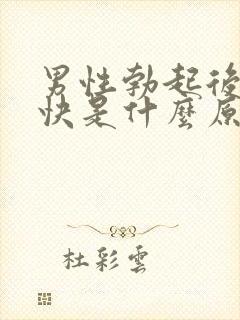 男性勃起後
快是什麼原
杜彩雲